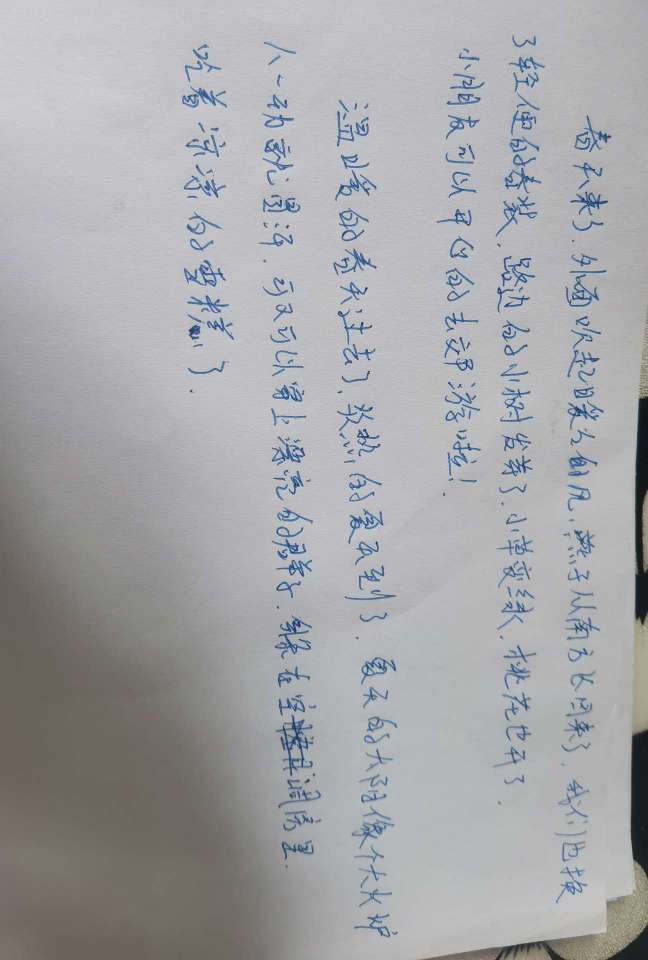 春天来了，外面吹起暖大的风，燕子从南方飞回来了，我们也换
了轻便的春装，路边的小树发芽了，小草变绿，桃花也开了，
小朋友可以开心的去郊游啦！
温暖的春天过去了，炎热的夏天到了，夏天的太阳像个大火炉
人一动就冒汗，可又可以穿上漂亮的裙子，躲在空调房里
吃着凉凉的雪糕了．